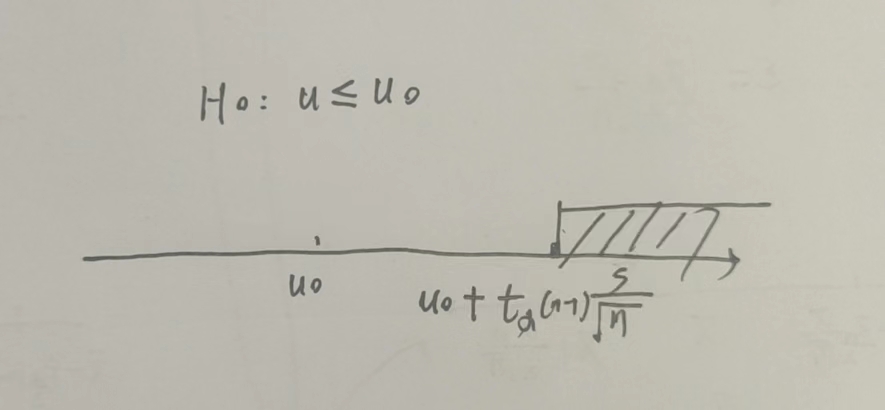 H₀: u ≤ u₀
u₀
u₀ + t_α(n-1) S/√n